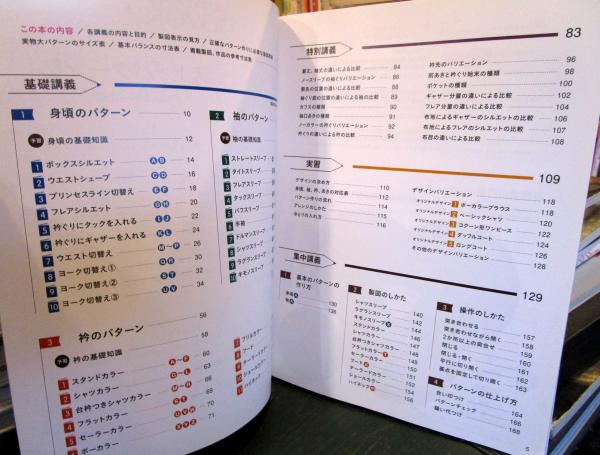 この本の内容 / 各講義の内容と目的 / 製図表示の見方 / 正確なパターン作りに必要な
実物大パターンのサイズ表 / 基本バランスの寸法表 / 掲載製図、作品の参考寸法表
基礎講義
1 身頃のパターン 10
予習 身頃の基礎知識 12
1 ボックスシルエット AB 14
2 ウエストシェープ CD 16
3 プリンセスライン切替え EF 18
4 フレアシルエット GH 20
5 衿ぐりにタックを入れる IJ 22
6 衿ぐりにギャザーを入れる KL 24
7 ウエスト切替え M-P 26
8 ヨーク切替え① QR 30
9 ヨーク切替え② ST 32
10 ヨーク切替え③ UV 34
2 袖のパターン
予習 袖の基礎知識
1 ストレートスリーブ
2 タイトスリーブ
3 フレアスリーブ
4 タックスリーブ
5 パフスリーブ
6 半袖
7 ドルマンスリーブ
8 シャツスリーブ
9 ラグランスリーブ
10 キモノスリーブ
3 衿のパターン 56
予習 衿の基礎知識 58
1 スタンドカラー 60
2 シャツカラー 64
3 台衿つきシャツカラー 66
4 フラットカラー ST 69
5 セーラーカラー UVW 70
6 ボーカラー XYZ 71
7 フリルカラー
8 フード
特別講義 83
着丈、袖丈の違いによる比較 84
ノースリーブの袖ぐりバリエーション 86
袖ぐり底の位置の違いによる袖の比較 89
カフスの種類 90
袖口あきの種類 91
ノーカラーの衿ぐりバリエーション 92
衿ぐりの違いによる衿の比較 94
衿先のバリエーション 96
前あきと衿ぐり始末の種類 98
ポケットの種類 100
ギャザー分量の違いによる比較 102
フレア分量の違いによる比較 104
布地によるギャザーのシルエットの比較 106
布地によるフレアのシルエットの比較 107
布目の違いによる比較 108
実習 109
デザインの決め方 110
身頃、袖、衿、あきの対応表 112
パターン作りの流れ 113
アレンジのしかた 114
ゆとりの入れ方 116
デザインバリエーション 118
オリジナルデザイン 1 ボーカラーブラウス 118
オリジナルデザイン 2 ベーシックシャツ 120
オリジナルデザイン 3 コクーン形ワンピース 122
オリジナルデザイン 4 ダッフルコート 124
オリジナルデザイン 5 ロングコート 126
その他のデザインバリエーション 128
集中講義 129
1 基本のパターンの作り方
身頃 A 130
袖 A 138
2 製図のしかた
シャツスリーブ 140
ラグランスリーブ 142
キモノスリーブ 144
スタンドカラー
シャツカラー
台衿つきシャツカラー
フラットカラー
セーラーカラー
フード
テーラードカラー
ショールカラー
ハイネック 156
3 操作のしかた
突き合わせる 157
突き合わせながら開く 158
2か所以上の突合せ 159
閉じる 160
閉じる+開く 161
平行に切り開く 162
基点を固定して切り開く 163
4 パターンの仕上げ方
合い印つけ 164
パターンチェック 166
縫い代つけ 168
5